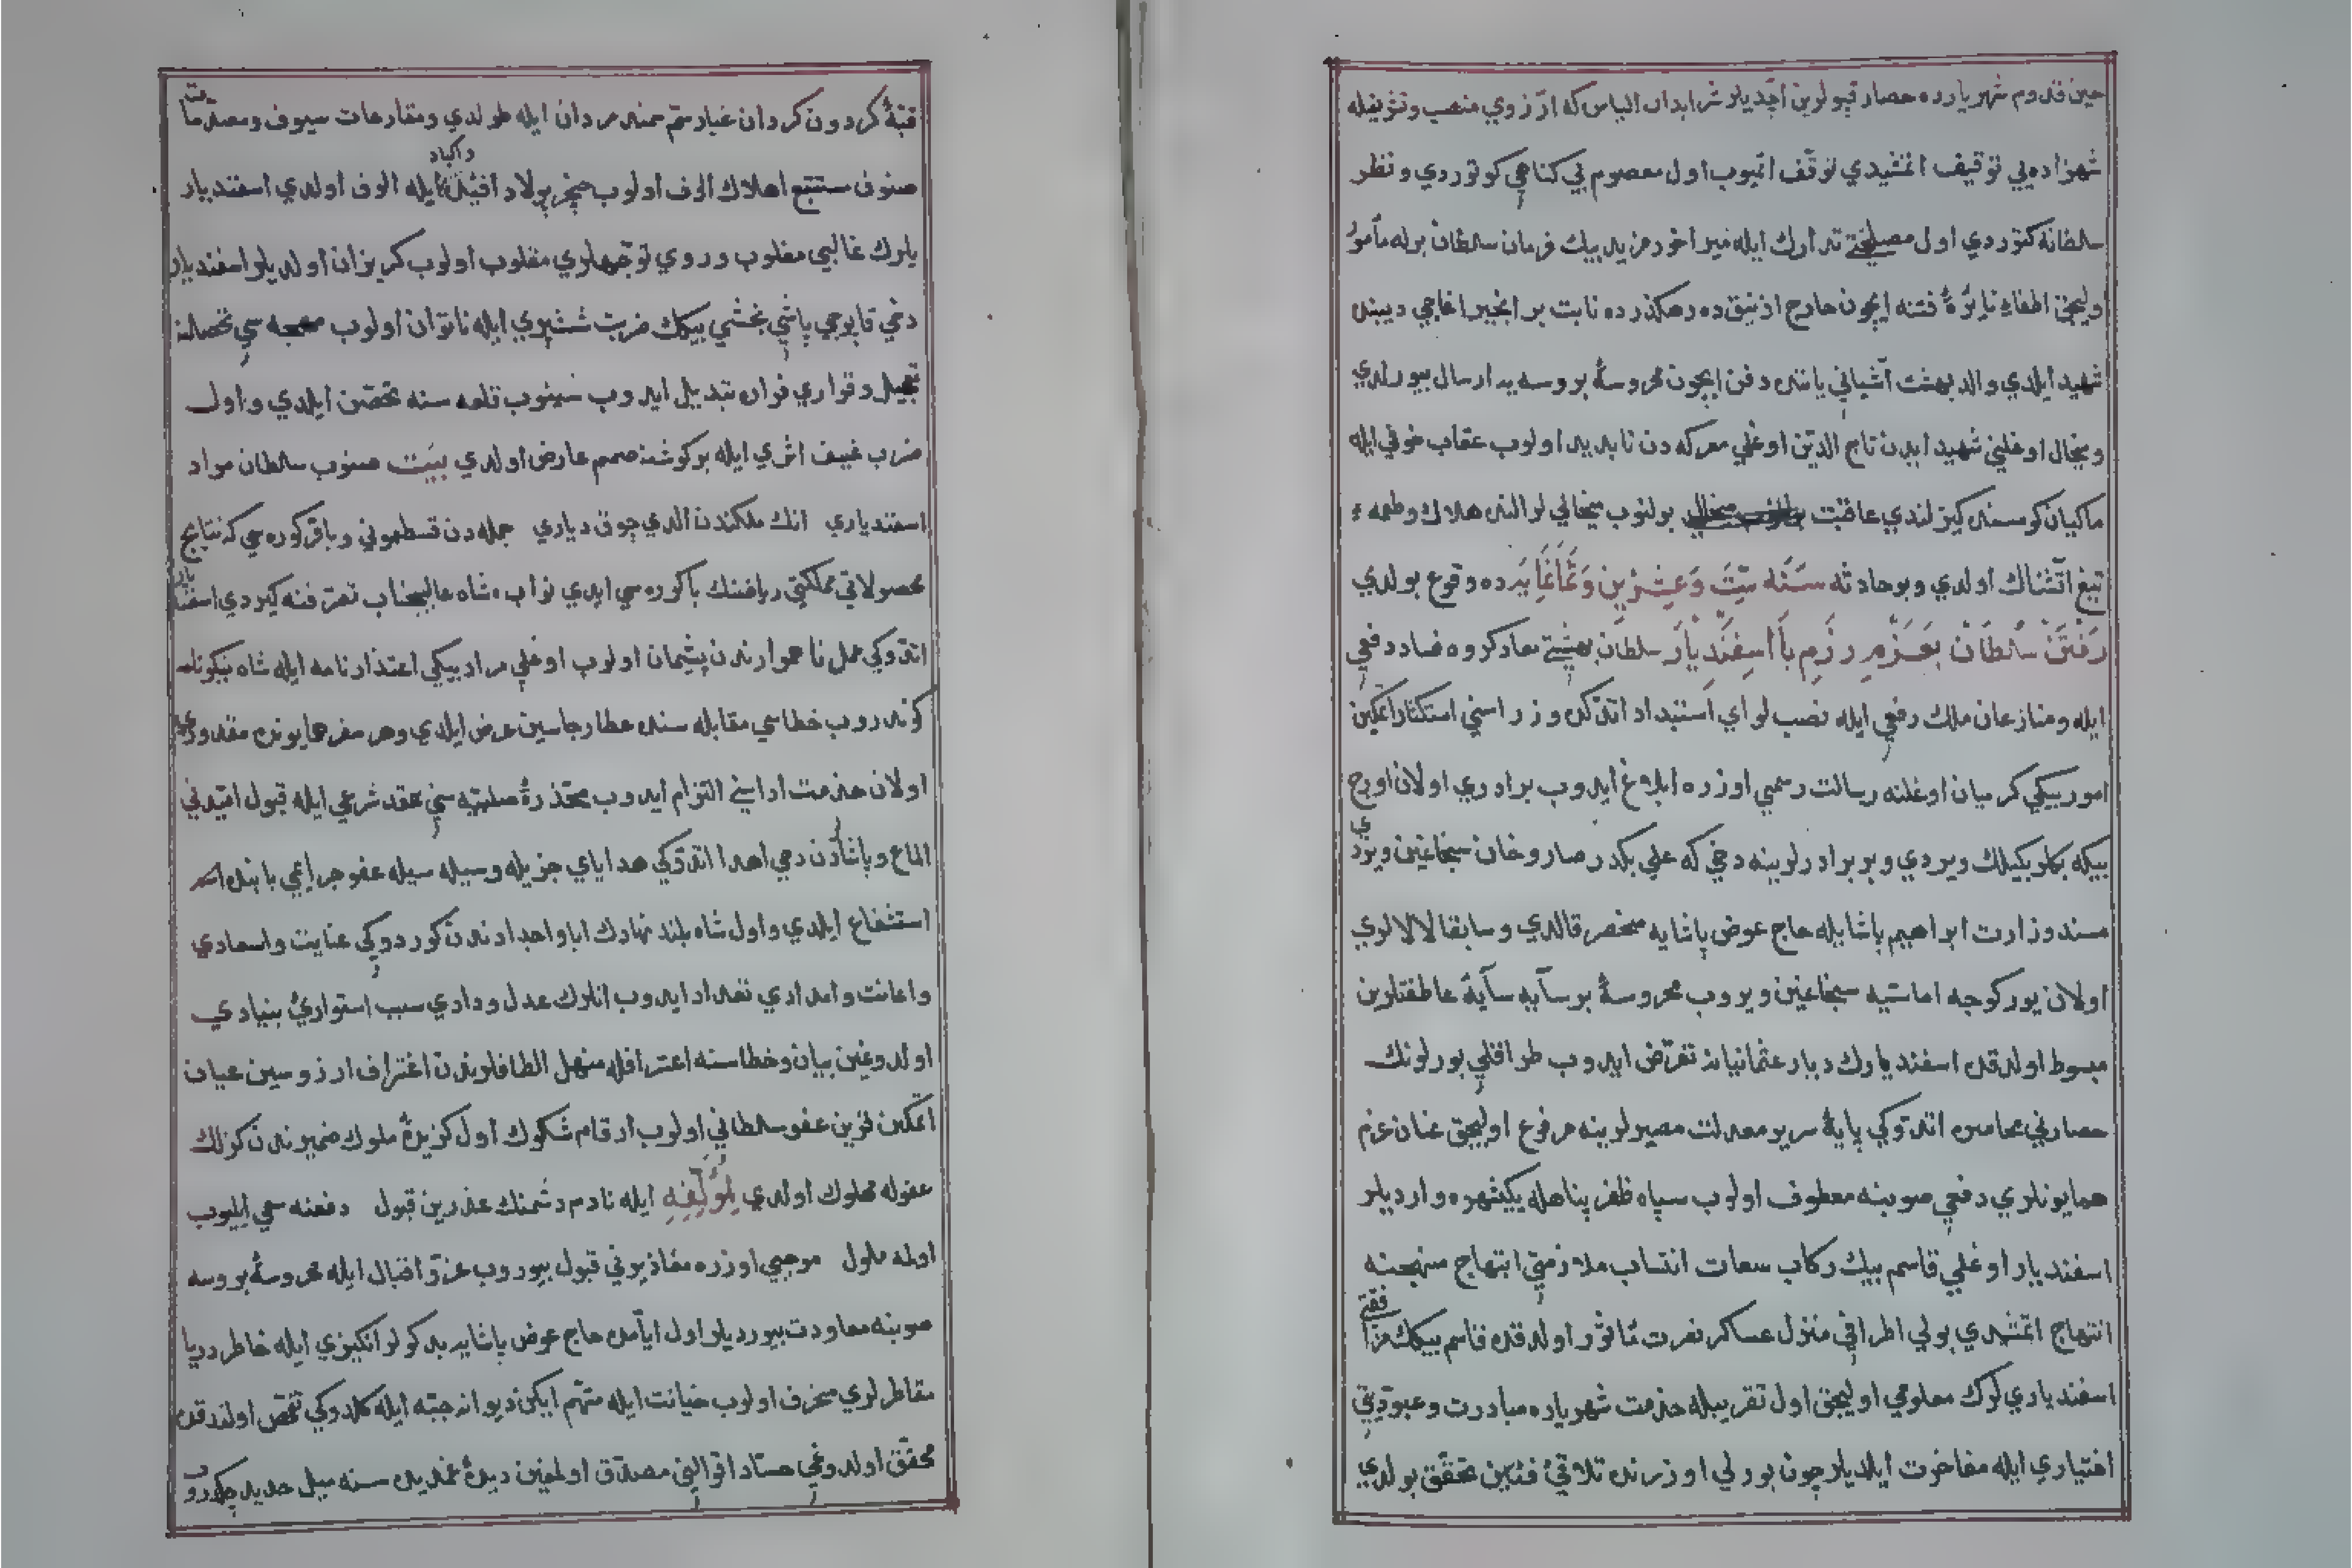 حين قدوم شهرياره حصار قپولرين آچديلر شرابدار الياس كه آرزوي منصب وتزيفله
شهزاده يي توقيف اتمشيدي توقّف اتميوب اول معصوم بي كناهي كوتوردي و نظر
سلطانه كتوردي اول مصلحتے تدارك ايله مير اخور مزيد بيك فرمان سلطان برله مأمور
وليجق اطفاء نايرۀ فتنه ايچون خارج ازنيق ده رهكذرده نابت بر انجير اغاجي ديبنده
شهيد ايلدي والد بهشت آشياني ياننده دفن ايچون محروسۀ بروسه يه ارسال بيورلدي
وميخال اوغلني شهيد ايدن تاج الدّين اوغلي معركه دن ناپديد اولوب عقاب خوفي ايله
ماكيان كومسنده كيزلندي عاقبت بولنوب ميخاللي لر النده هلاك وطعمۀ
تيغ آتشناك اولدي و بو حادثه سَنَه سِتَّ وَعِشْرِين وَثَمَانمَايَه ده وقوع بولدي
رَفْتَنْ سُلْطَانْ بَعَزْمِ رَزْمِ بَا اسِفَنْدِيَارْ سلطان بهشتے معاد كروه فساد دفعي
ايله ومنازعان ملك رفعي ايله نصب لواي استبداد اتدكده وزراسني استكثار اتمكين
امور بيكي كرميان اوغلنه رسالت رسمي اوزره ابلاغ ايدوب برادري اولان اورج
بيكه بكلربكيلك ويردي و بر برادرلرينه دخي كه علي بكدر صاروخان سنجاغين ويردي
مسند وزارت ابراهيم پاشا ايله حاج عوض پاشايه منحصر قالدي و سابقا لالالري
اولان يوركوجه اماسيه سنجاغين ويروب محروسۀ برسايه سايۀ عاطفتلرين
مبسوط اولدقده اسفنديارك ديار عثمانيانه تعرّض ايدوب طراقلي بورلونك
حصاريني محاصره اتدوكي پايۀ سرير معدلت مصيرلرينه مرفوع اوليجق عنان عزم
همايونلري دفعي صوبنه معطوف اولوب سپاه ظفر پناهله يكيشهره وارديلر
اسفنديار اوغلي قاسم بيك ركاب سعات انتساب ملازمتي ابتهاج منهجنه
انتهاج اتمشدي بولي اطرافي منزل عساكر نصرت مأثور اولدقده قاسم بيكك مرافقتے
اسفندياري لرك معلومي اوليجق اول تقريبله خذمت شهرياره مبادرت وعبوديتي
اختياري ايله مفاخرت ايلديلر چون بورلي اوزرنده تلاقئ فئتين تحقّق بولدي
قبّۀ كردون كردان غبار سمّ سمند مردان ايله طولدي ومقارعات سيوف ومصدّمات
صنوف مستتبع اهلاك الوف اولوب خنجر پولاد افئده واكباد ايله الوف اولدي اسفنديار
يلرك غالبي مغلوب و روي توجّهلري مقلوب اولوب كريزان اولديلر اسفنديار
دخي قاپوجي باشي يخشي بيكك ضربت شمشيري ايله ناتوان اولوب
تعجيل و قراري فراره تبديل ايدوب سينوب قلعه سنه تحصّن ايلدي و اول
ضرب عنيف اثري ايله بر كوشنه صمم عارض اولدي بيَت صنوب سلطان مراد
اسفندياري انك ملكندن الدي چوق دياري جمله دن قسطموني و باقر كوره سي كه نتايج
محصولاتي مملكتي رياضنك باكوره سي ايدي نواب شاه عاليجناب تصرّفنه كيردي اسفنديار
اتدوكي عمل ناهموارندن پشيمان اولوب اوغلي مراد بيكي اعتذارنامه ايله شاه نيكونامه
كوندروب خطاسي مقابله سنده عطا رجاسين عرض ايلدي وهر سفر همايونده مقدوري
اولان خذمت اداسني التزام ايدوب مخدّرۀ صلبيّه سني عقد شرعي ايله قبول اميّدني
الماع و پاشادن دخي اهدا اتدوكي هداياي جزيله وسيله سيله عفو جرايمي بابنده
استشفاع ايلدي و اول شاه بلند نهادك ابا واجدادندن كوردوكي عنايت واسعادي
و اعانت وامدادي تعداد ايدوب انلرك عدل و دادي سبب استوارئ بنيادي
اولدوغين بيان وخطاسنه اعترافله منهل الطافلرندن اغتراف ارزوسين عيان
اتمكين قرين عفو سلطاني اولوب ارقام شكوك اول كزيدۀ ملوك ضميرندن كزلك
عفوله محكوك اولدي لِمُؤَلِّفِهِ ايله نادم دشمنك عذرين قبول دفعنه سعي ايليوب
اولمه ملول موجبي اوزره معاذيرني قبول بيوروب عزّ و اقبال ايله محروسۀ بروسه
صوبنه معاودت بيورديلر اول ايّامده حاج عوض پاشايه بدكولر انكيزي ايله خاطر دريا
مقاطرلري منحرف اولوب خيانت ايله متهم ايكن ديوانه جبّه ايله كلدوكي تفحّص اولندقده
محقّق اولدوغي حسّاد اقوالني مصدّق اولمغين ديدۀ غمديده سنه ميل حديد چكدروب